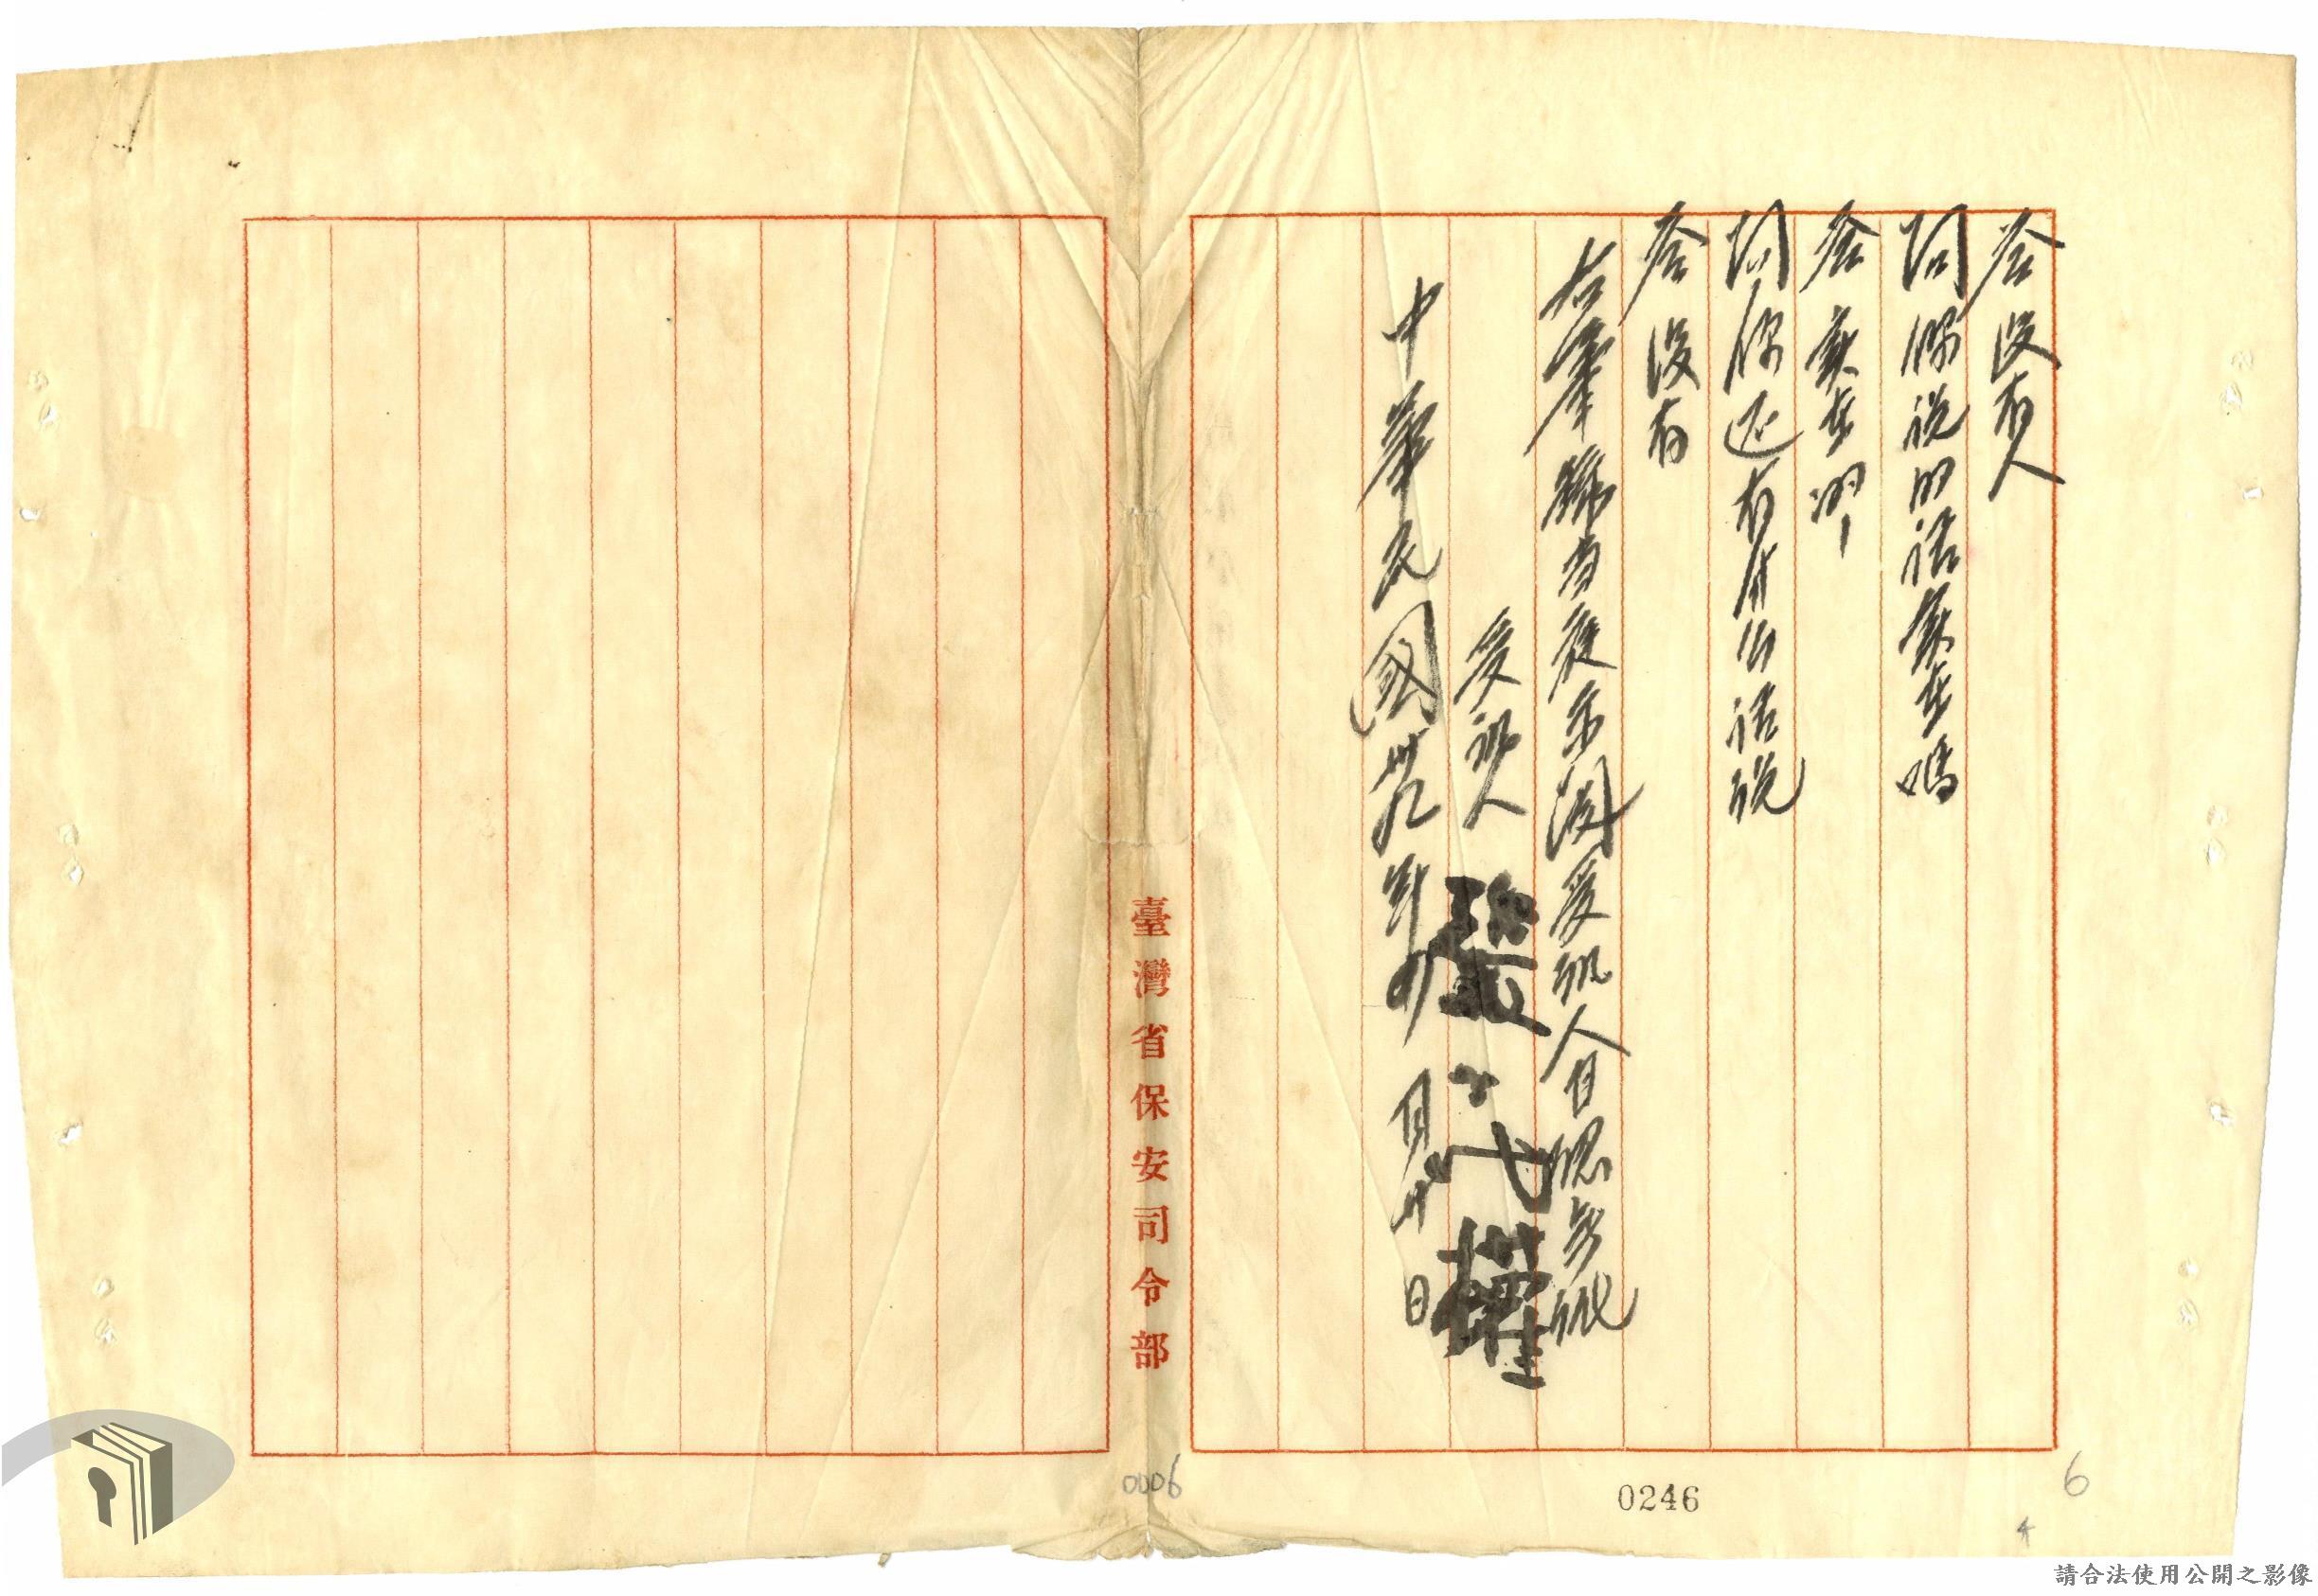 答 沒有人
問 你說的話實在嗎
答 實在的
問 你还有什么話說
答 沒有
右筆錄当庭示閱受訊人自認無訛
受訊人
中華民國卅九年 月 日
臺灣省保安司令部
0006
0246
6
請合法使用公開之影像